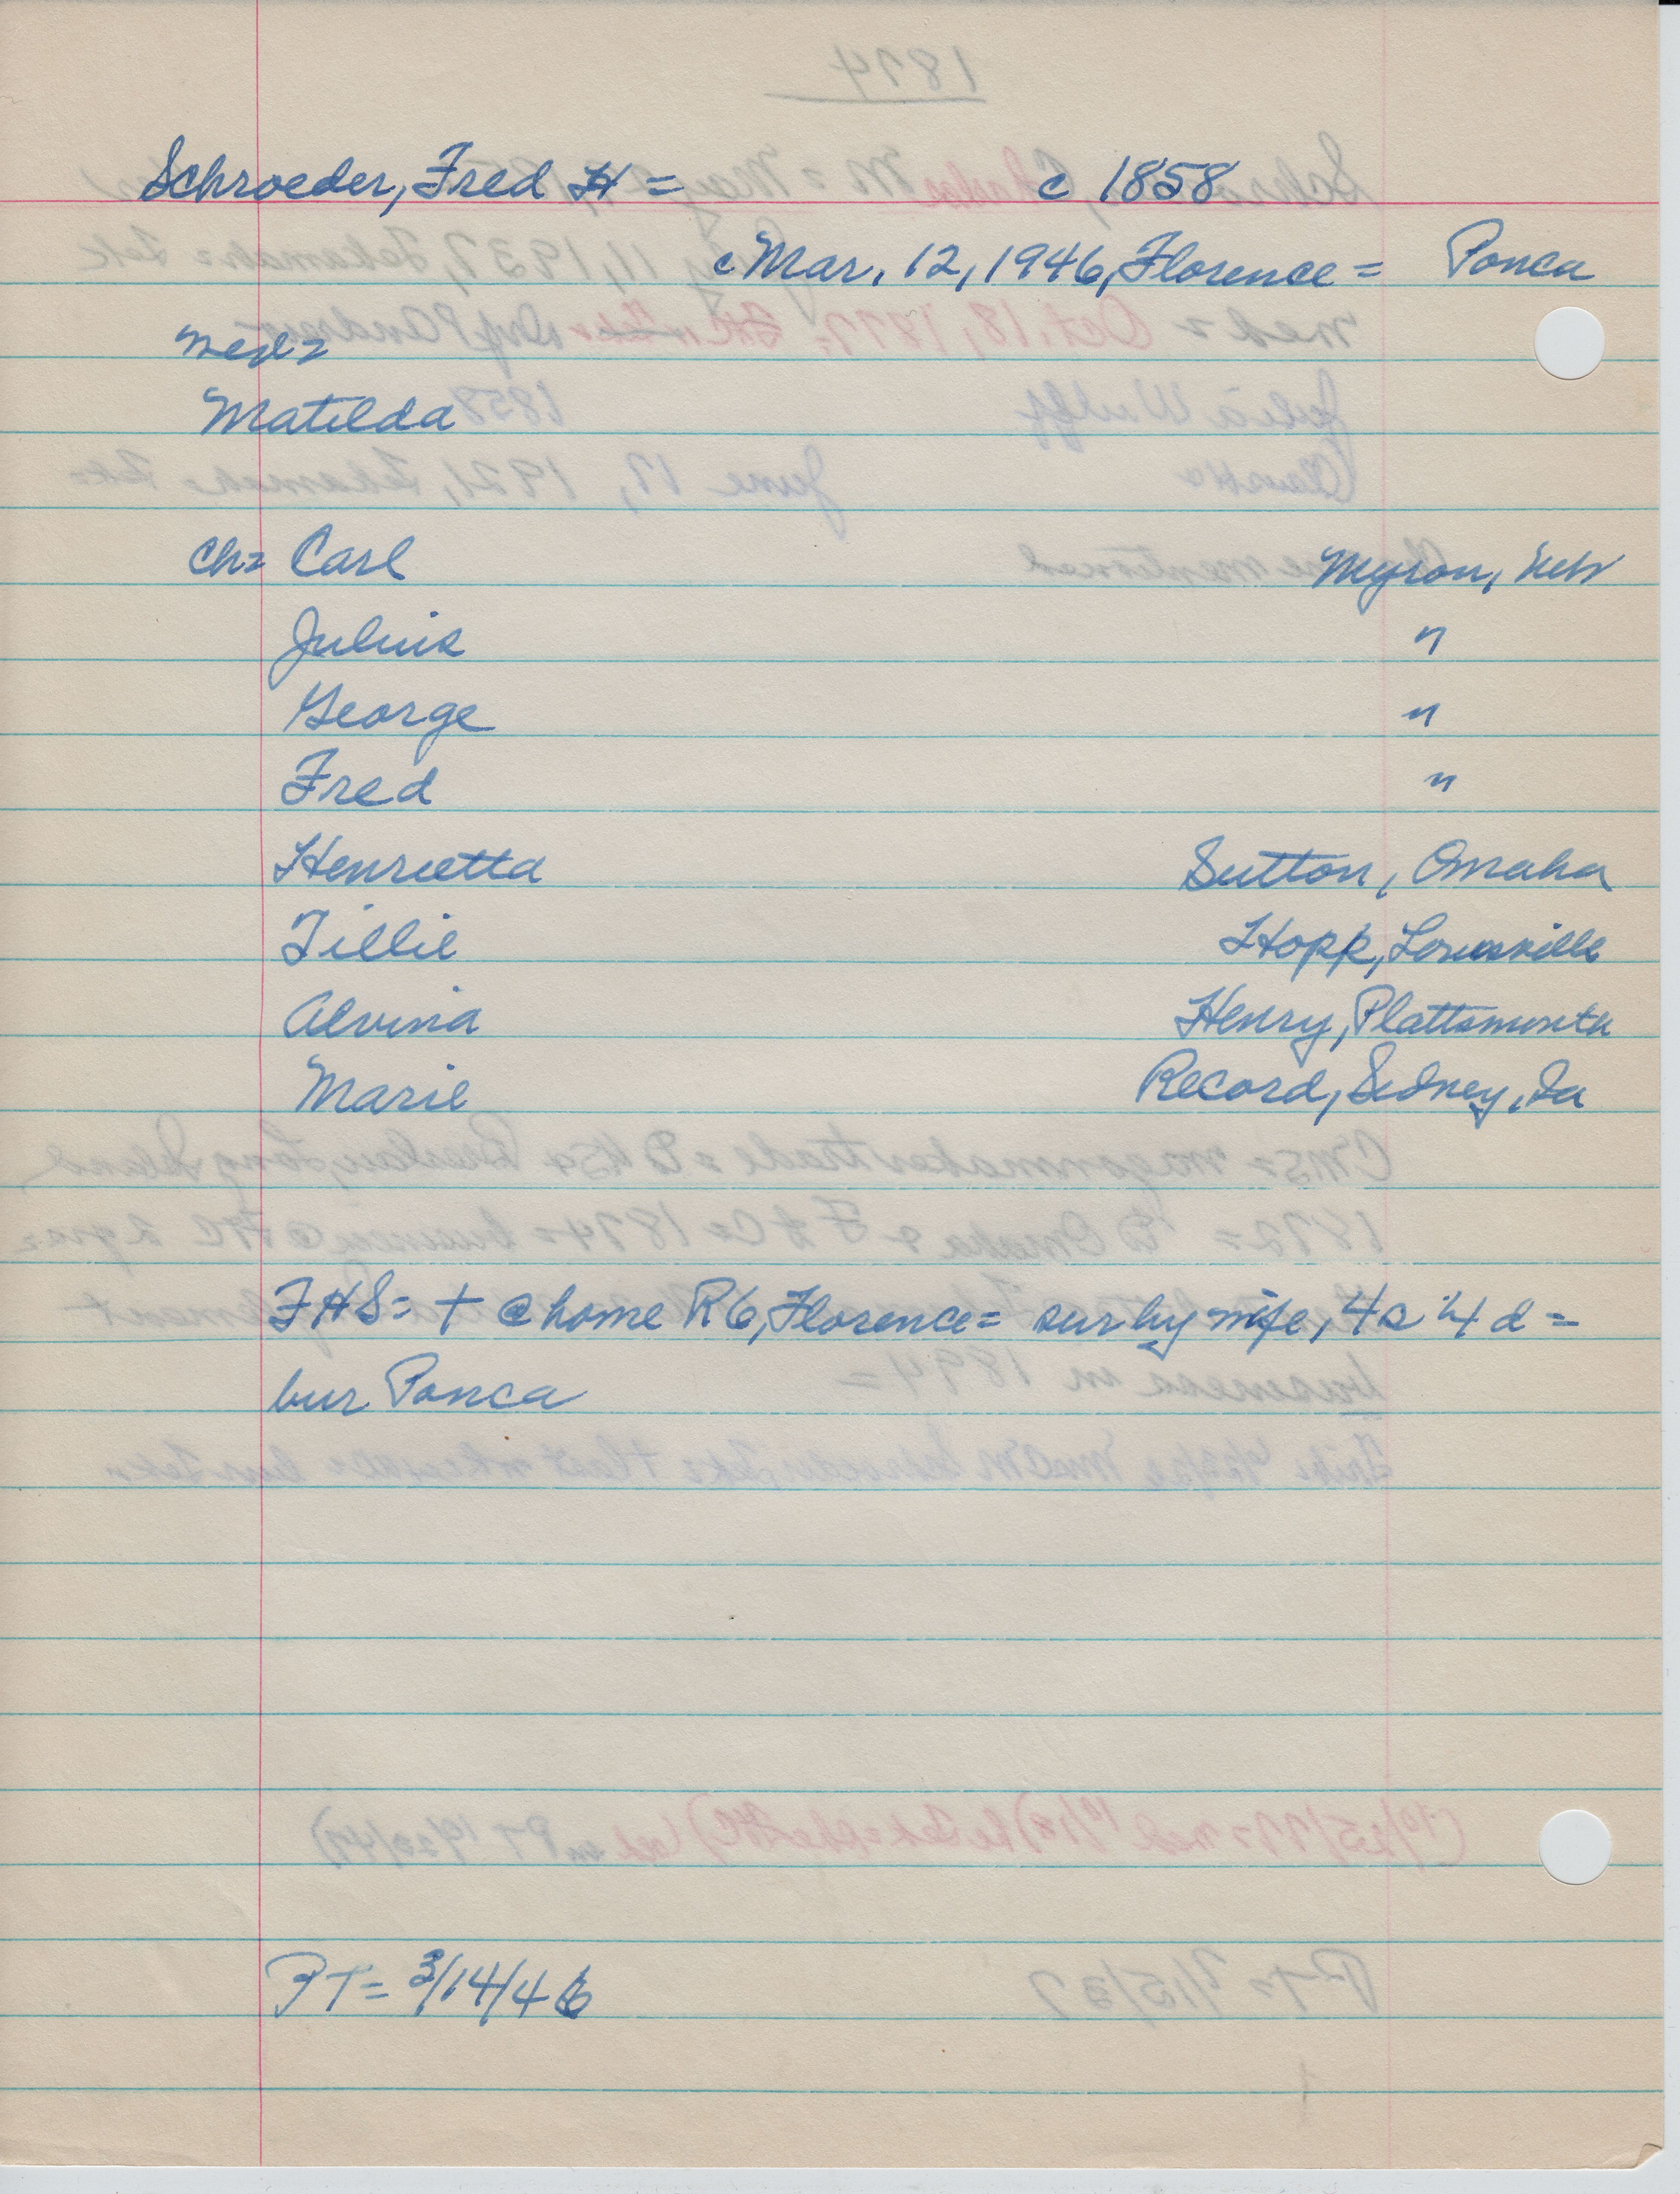 Schroeder, Fred H = c 1858
c Mar. 12, 1946, Florence = Ponca
med =
Matilda
Ch= Carl Mynon, Neb
Julius "
George "
Fred "
Henrietta Sutton, Omaha
Tillie Hopp, Louisville
Alvina Henry, Plattsmouth
Marie Record, Sidney, Ia
FHS= + @ home R6, Florence = sur by wife, 4 s 4 d =
bur Ponca
PT= 3/14/46